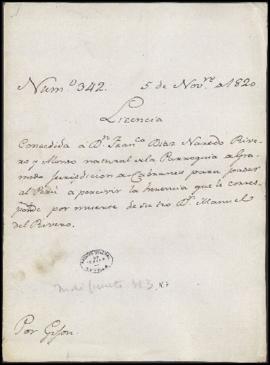 Num.º 342. 5 de Nov.re de 1820
Licencia
Concedida á Dn. Fran.co Diaz Naredo Rive-
ro y Alonso natural de la Parroquia de Gra-
medo Jurisdicion de Cabranes para pasar
al Perú á percivir la herencia que le corres-
ponde por muerte de su tio Dn. Manuel
del Rivero.
Por Gijon.